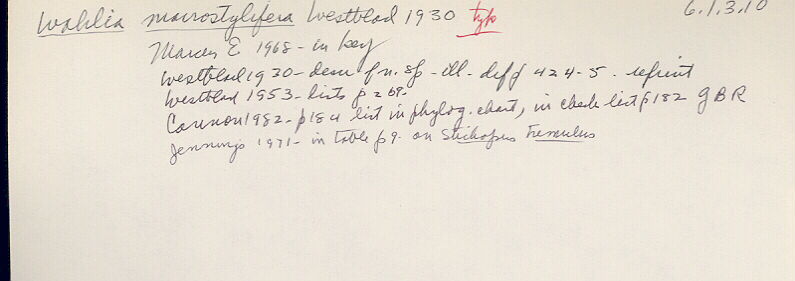 Wahlia macrostylifera Westblad 1930 type 6.1.3.10
Marcus E 1968 - in key
Westblad 1930 - descr of n. sp - ill. - diff 424-5. reprint
Westblad 1953 - lists p 269.
Cannon 1982 - p 184 list in phylog. chart, in check list p 182 GBR
Jennings 1971 - in table p 9. on Stichopus tremulus